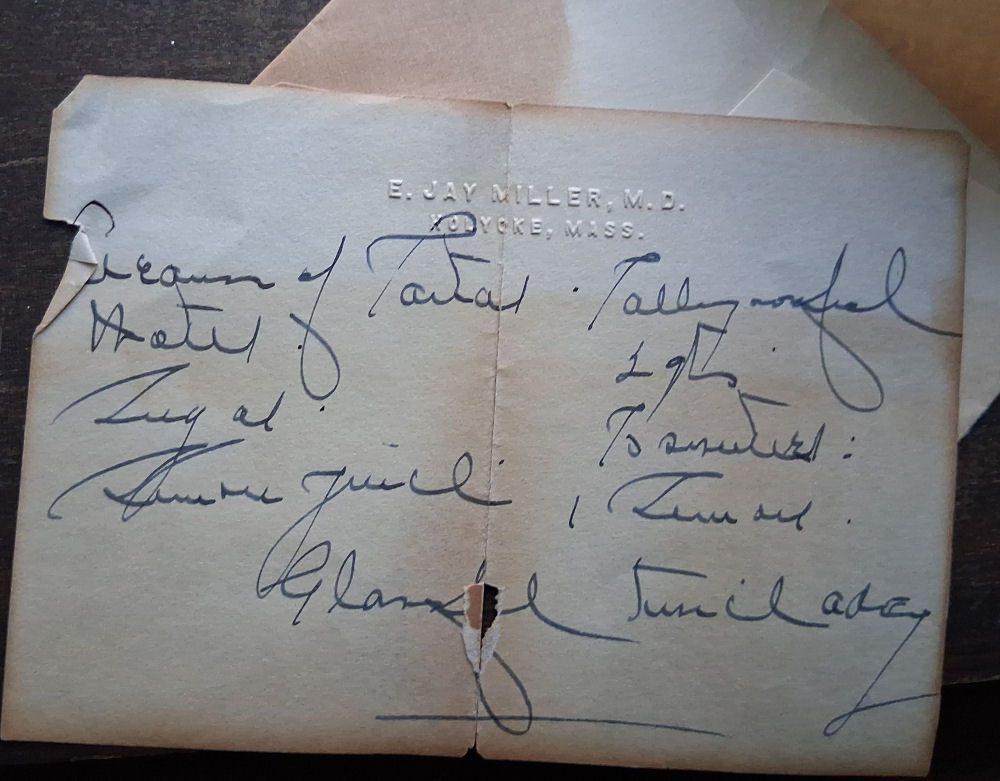 E. JAY MILLER, M.D.
HOLYOKE, MASS.
Cream of Tartar . Tablespoonful
Water . 2 qts .
Sugar . To sweeten :
Lemon juice 1 Lemon .
Glassful twice a day